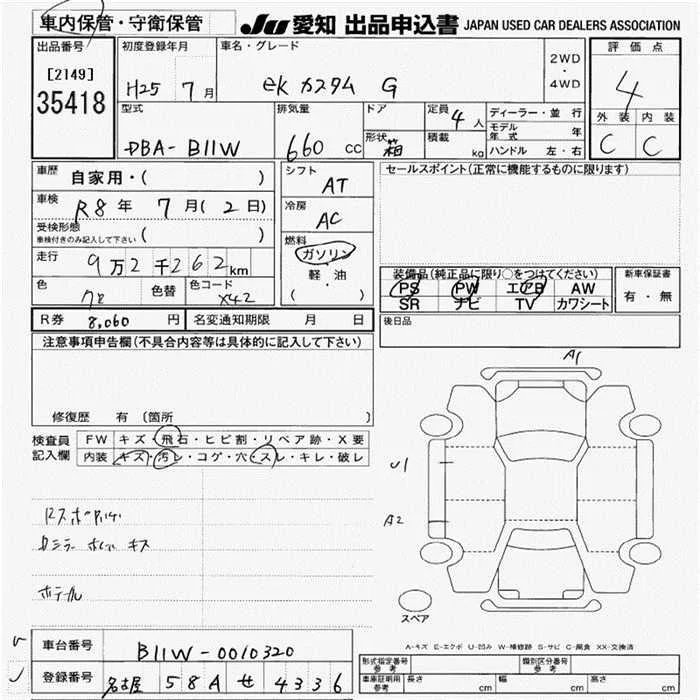 車内保管・守衛保管
JU 愛知 出品申込書 JAPAN USED CAR DEALERS ASSOCIATION
出品番号
[2149]
35418
初度登録年月
H25 7月
車名・グレード
ek カスタム G
2WD
・
4WD
評価点
4
外装 内装
C C
型式
DBA- B11W
排気量
660 CC
ドア
形状 箱
定員 4人
積載 kg
ディーラー・並行
モデル年式 年
ハンドル 左・右
車歴
自家用・( )
車検
R8年 7月(2日)
受検形態
車検付きのみ記入して下さい ( )
走行
9万2千262km
色
色替
色コード
X42
シフト
AT
冷房
AC
燃料
ガソリン
軽・油
( )
セールスポイント(正常に機能するものに限ります)
装備品(純正品に限り○をつけてください)
PS PW エアB AW
SR ナビ TV カワシート
新車保証書
有・無
R券 8,060 円 名変通知期限 月 日
後日品
注意事項申告欄(不具合内容等は具体的に記入して下さい)
修復歴 有 (箇所
検査員記入欄
FW キズ・飛石・ヒビ割・リペア跡・X要
内装 キズ・汚レ・コゲ・穴・スレ・キレ・破レ
A1
U1
A2
スペア
A-キズ E-エクボ U-凹み W-補修跡 S-サビ C-腐食 XX-交換済
車台番号 B11W-0010320
登録番号 名古屋 58A せ 4336
形式指定番号 参考
類別区分番号 参考
車庫証明用 参考 長さ cm 幅 cm 高さ cm